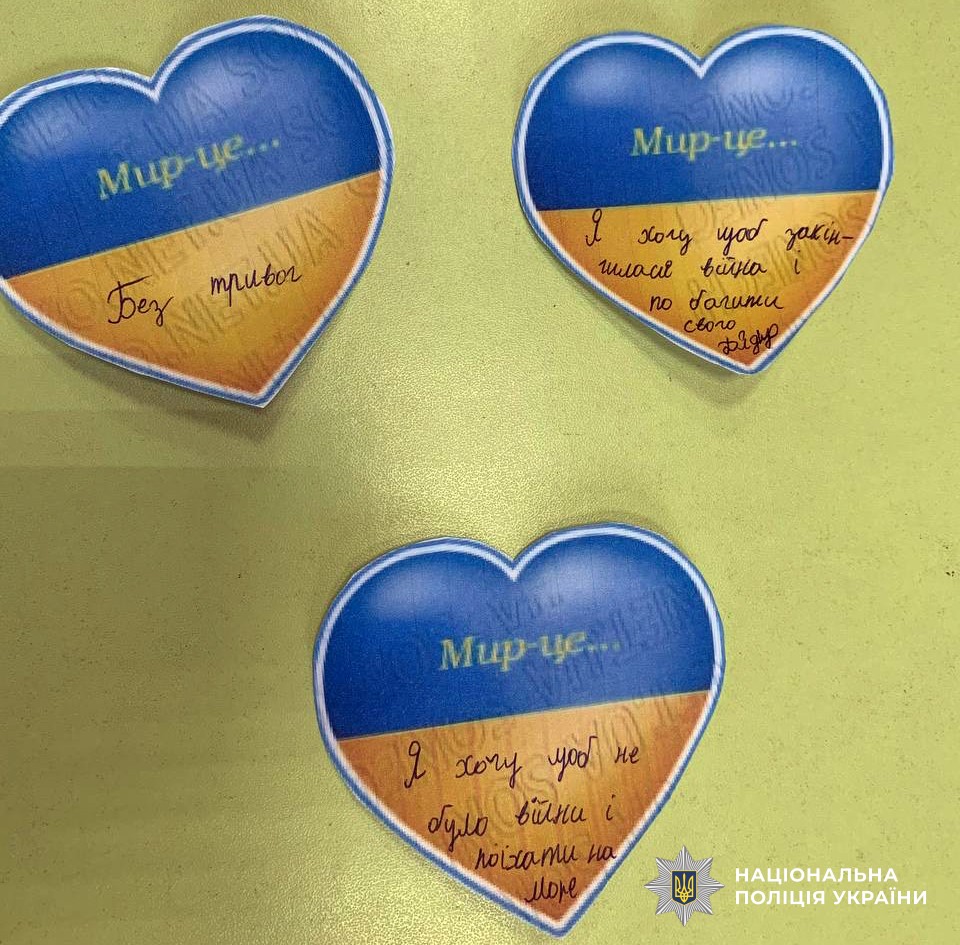 Мир-це...
Без тривог
Мир-це...
Я хочу щоб закін-
чилася війна і
по бачити
свого
Мир-це...
Я хочу щоб не
було війни і
поїхати на
море
НАЦІОНАЛЬНА
ПОЛІЦІЯ УКРАЇНИ